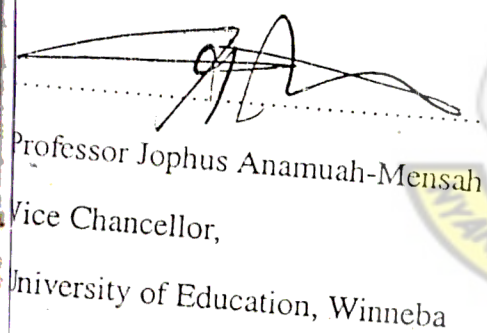 Professor Jophus Anamuah-Mensah
Vice Chancellor,
University of Education, Winneba